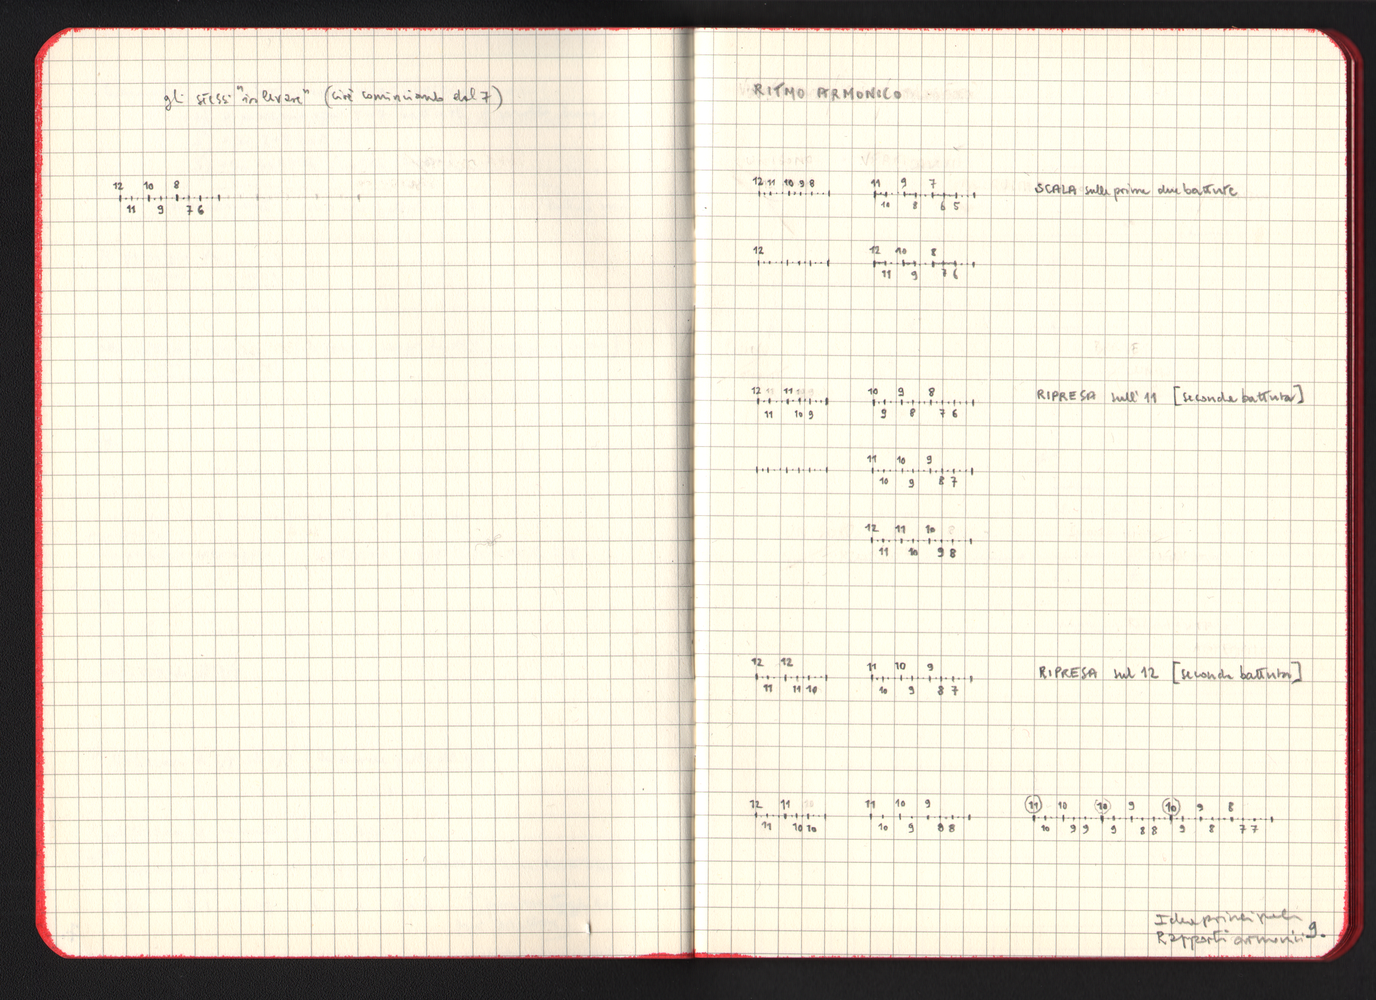 gli stessi "in levare" (cioè cominciando dal 7)
12 10 8
11 9 7 6
RITMO ARMONICO
12 11 10 9 8 11 9 7 SCALA sulle prime due battute
10 8 6 5
12 12 10 8
11 9 7 6
12 11 10 9 8 RIPRESA sull'11 [seconda battuta]
11 10 9 9 8 7 6
11 10 9
10 9 8 7
12 11 10
11 10 9 8
12 12 11 10 9 RIPRESA sul 12 [seconda battuta]
11 11 10 10 9 8 7
12 11 11 10 9 11 10 10 9 10 9 8
11 10 10 10 9 8 8 10 9 9 9 8 8 9 8 7 7
Idee principali
Rapporti armonici 9.